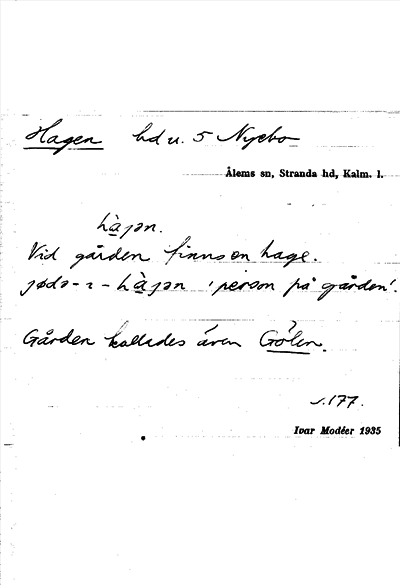 Hagen hd u. 5 Nyebo
Ålems sn, Stranda hd, Kalm. l.
hàjən.
Vid gården finns en hage.
jødə-ɿ-hàjən 'person på gården'.
Gården kallades även Gölen.
s. 177.
Ivar Modéer 1935